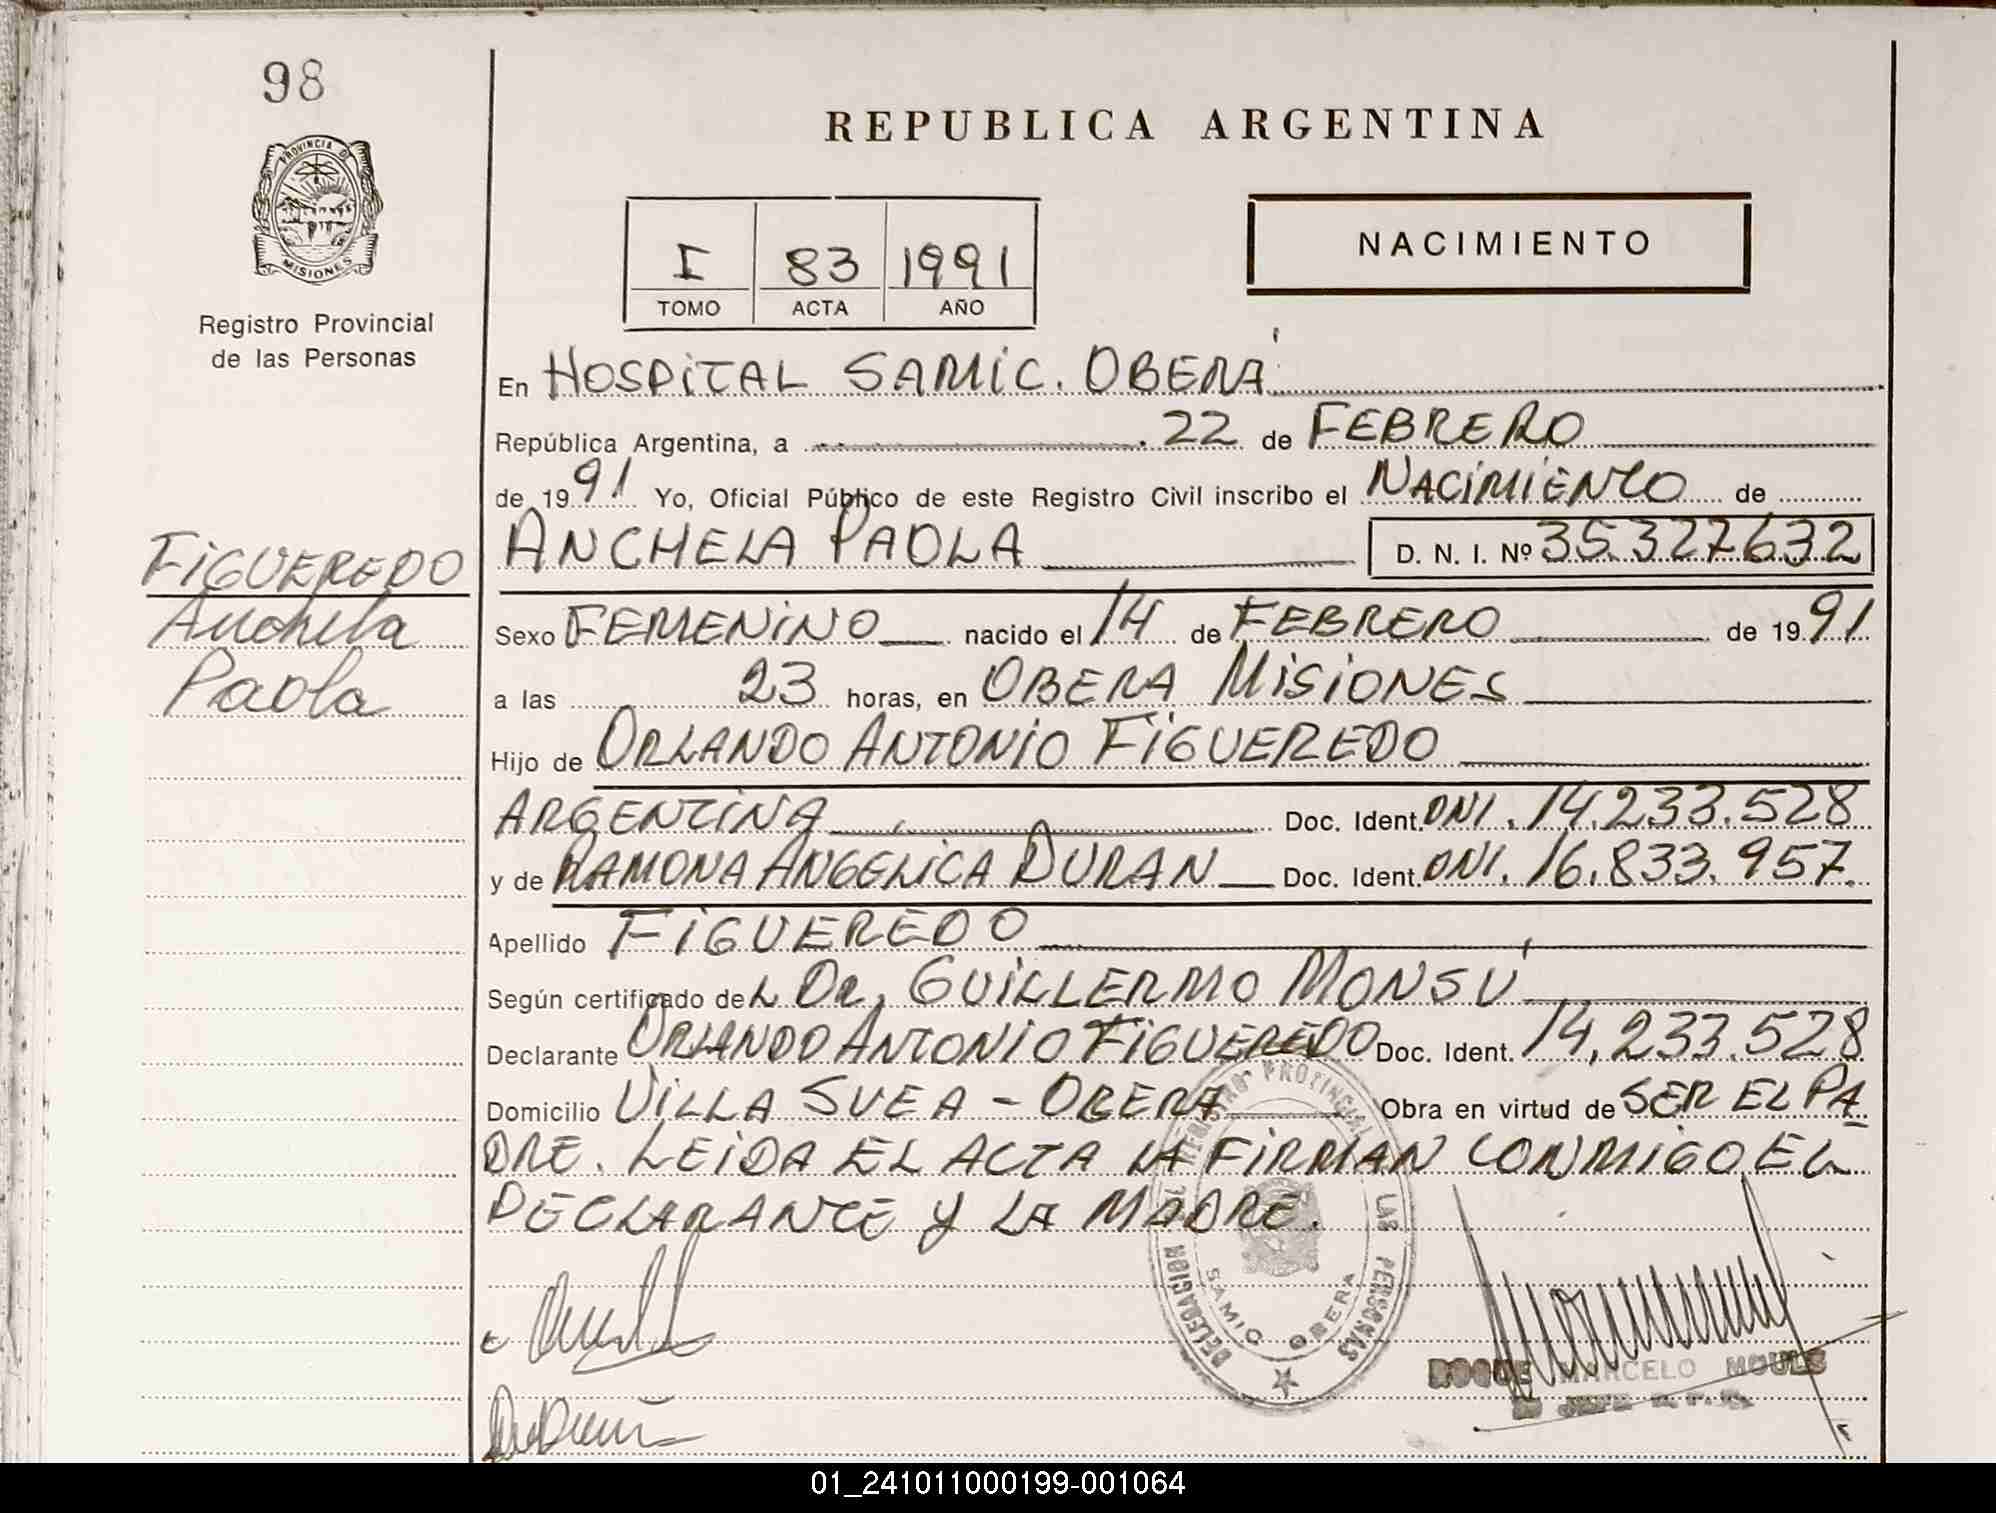 98
PROVINCIA DE
MISIONES
Registro Provincial
de las Personas
FIGUEREDO
Anchela
Paola
REPUBLICA ARGENTINA
I 83 1991
TOMO ACTA AÑO
NACIMIENTO
En HOSPITAL SAMIC. OBERÁ
República Argentina, a 22 de FEBRERO
de 1991 Yo, Oficial Público de este Registro Civil inscribo el NACIMIENTO de
ANCHELA PAOLA D. N. I. Nº 35.327632
Sexo FEMENINO nacido el 14 de FEBRERO de 1991
a las 23 horas, en OBERA MISIONES
Hijo de ORLANDO ANTONIO FIGUEREDO
ARGENTINA Doc. Ident. DNI. 14.233.528
y de RAMONA ANGELICA DURAN Doc. Ident. DNI. 16.833.957.
Apellido FIGUEREDO
Según certificado deL DR. GUILLERMO MONSÚ
Declarante ORLANDO ANTONIO FIGUEREDO Doc. Ident. 14.233.528
Domicilio VILLA SVEA - OBERA Obra en virtud de SER EL PA
DRE. LEIDA EL ACTA LA FIRMAN CONMIGO EL
DECLARANTE Y LA MADRE.
DELEGACION DEL REGISTRO PROVINCIAL DE LAS PERSONAS
SAMIC OBERA
ROQUE MARCELO MOULS
JEFE
01_241011000199-001064